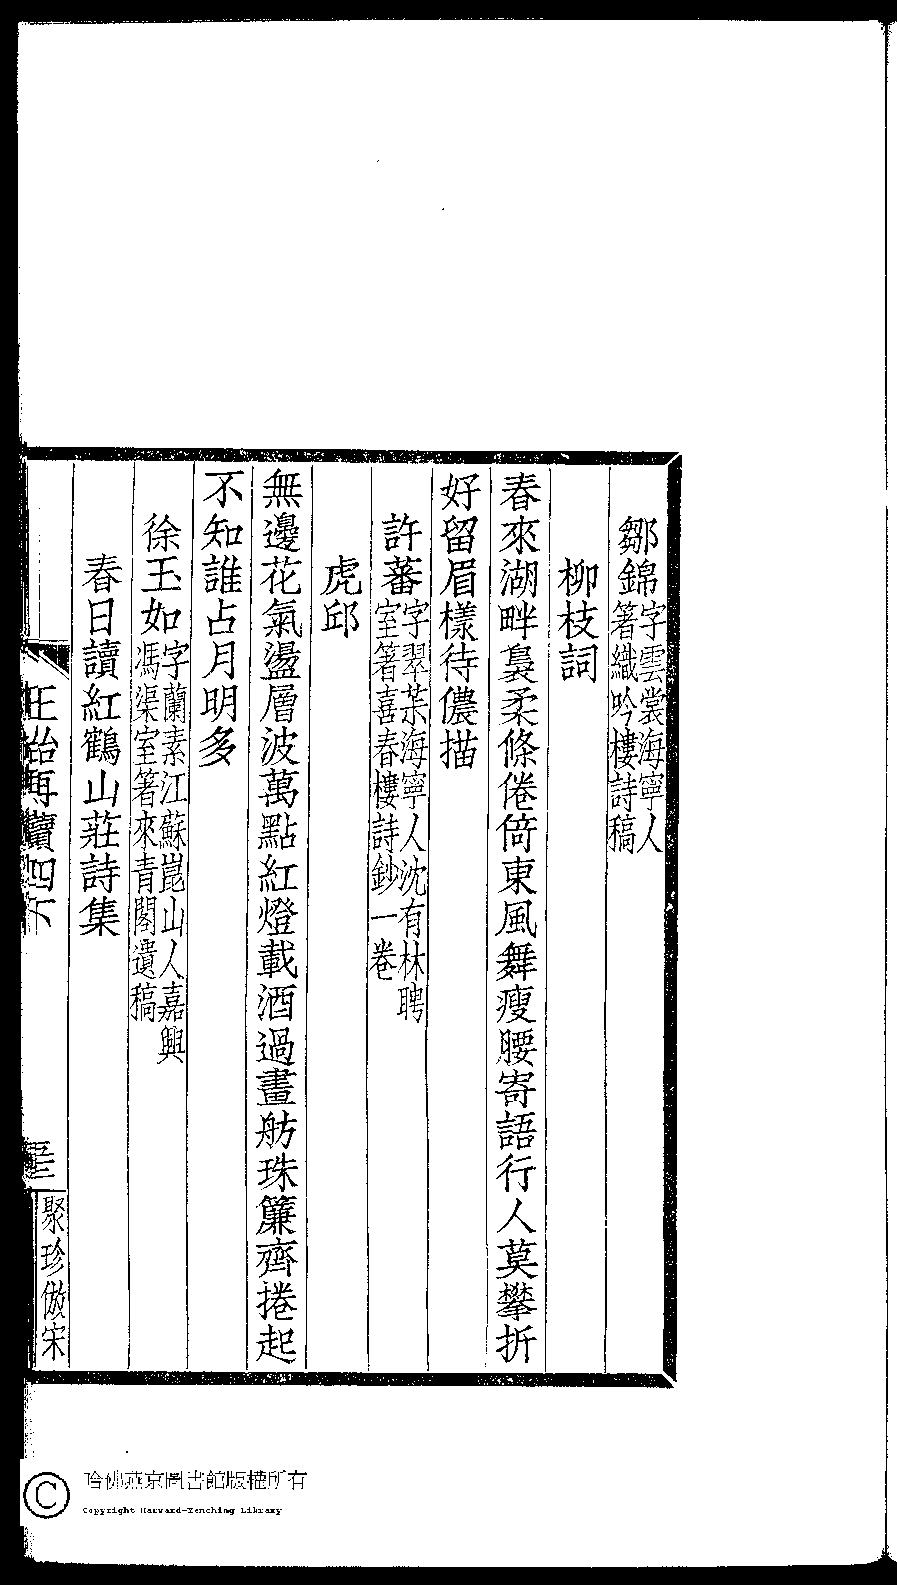 鄒錦字雲裳海寧人著織吟樓詩稿
柳枝詞
春來湖畔裊柔條倦倚東風舞瘦腰寄語行人莫攀折
好留眉樣待儂描
許蕃字翠棻海寧人沈有林聘室著喜春樓詩鈔一卷
虎邱
無邊花氣盪層波萬點紅燈載酒過畫舫珠簾齊捲起
不知誰占月明多
徐玉如字蘭素江蘇崑山人嘉興馮渠室著來青閣遺稿
春日讀紅鶴山莊詩集
聚珍倣宋
哈佛燕京圖書館版權所有
Copyright Harvard-Yenching Library